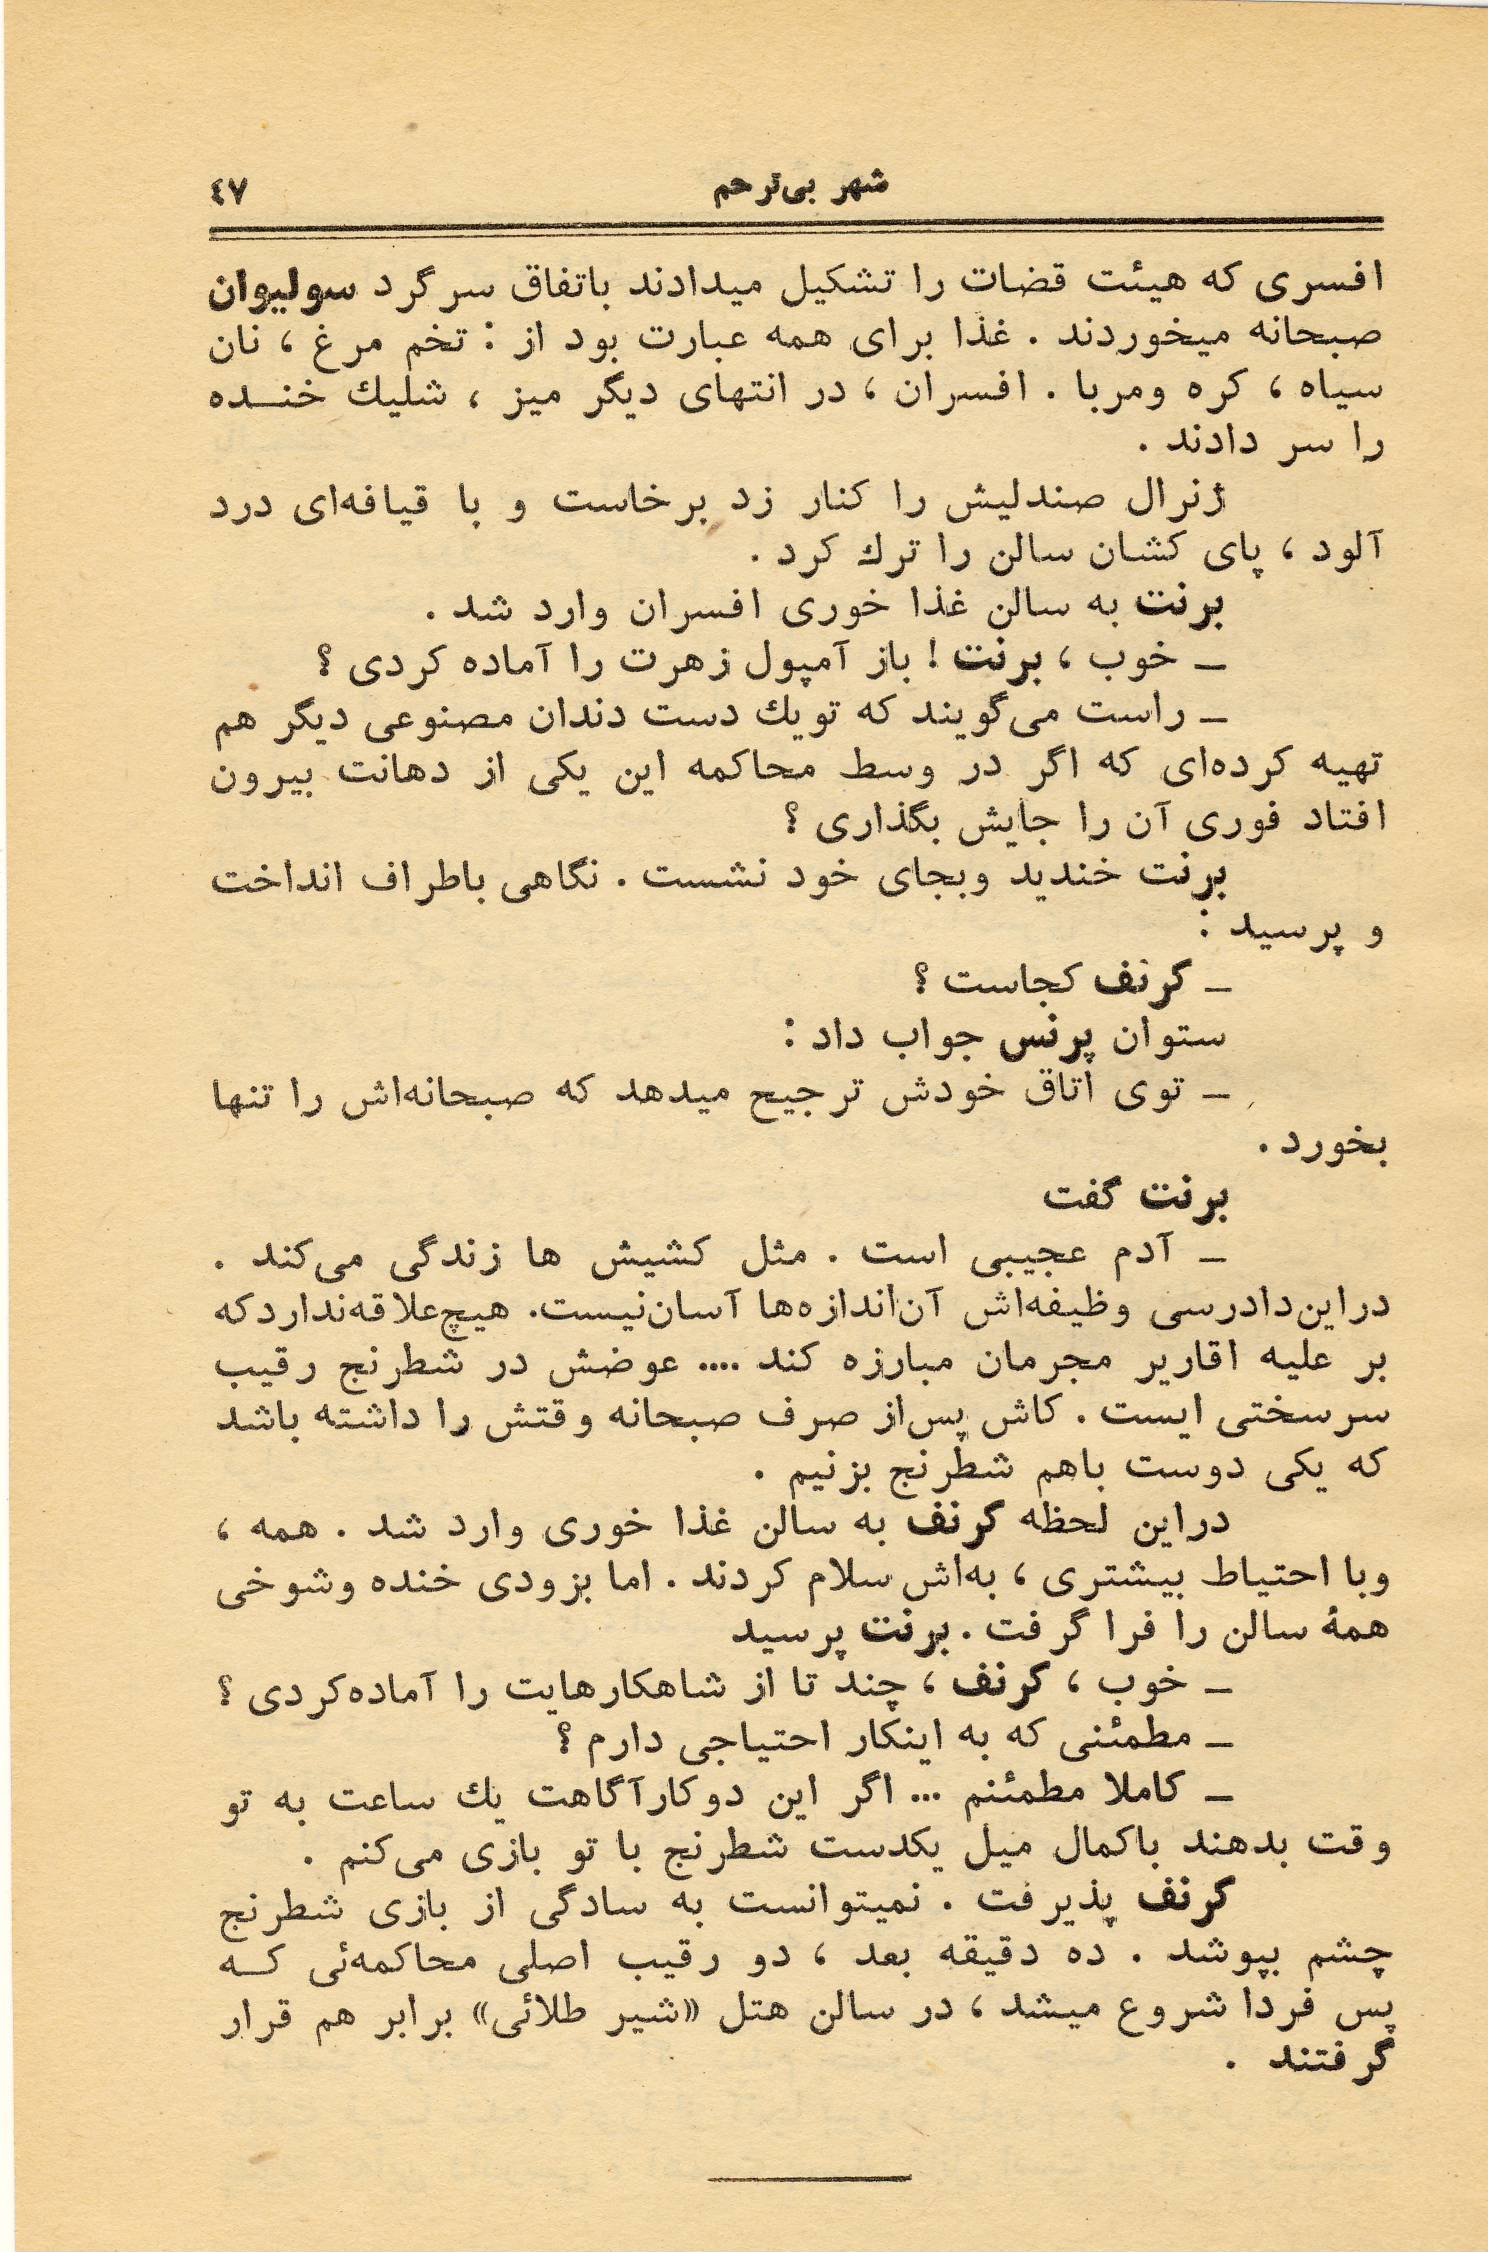 شهر بی‌ترحم
٤٧
افسری که هیئت قضات را تشکیل میدادند باتفاق سرگرد سولیوان
صبحانه میخوردند . غذا برای همه عبارت بود از : تخم مرغ ، نان
سیاه ، کره ومربا . افسران ، در انتهای دیگر میز ، شلیك خنـده
را سر دادند .
ژنرال صندلیش را کنار زد برخاست و با قیافه‌ای درد
آلود ، پای کشان سالن را ترك کرد .
برنت به سالن غذا خوری افسران وارد شد .
ـ خوب ، برنت ! باز آمپول زهرت را آماده کردی ؟
ـ راست می‌گویند که تویك دست دندان مصنوعی دیگر هم
تهیه کرده‌ای که اگر در وسط محاکمه این یکی از دهانت بیرون
افتاد فوری آن را جایش بگذاری ؟
برنت خندید وبجای خود نشست . نگاهی باطراف انداخت
و پرسید :
ـ گرنف کجاست ؟
ستوان پرنس جواب داد :
ـ توی اتاق خودش ترجیح میدهد که صبحانه‌اش را تنها
بخورد .
برنت گفت
ـ آدم عجیبی است . مثل کشیش ها زندگی می‌کند .
دراین‌دادرسی وظیفه‌اش آن‌اندازه‌ها آسان‌نیست. هیچ‌علاقه‌نداردکه
بر علیه اقاریر مجرمان مبارزه کند .... عوضش در شطرنج رقیب
سرسختی ایست . کاش پس‌از صرف صبحانه وقتش را داشته باشد
که یکی دوست باهم شطرنج بزنیم .
دراین لحظه گرنف به سالن غذا خوری وارد شد . همه ،
وبا احتیاط بیشتری ، به‌اش سلام کردند . اما بزودی خنده وشوخی
همهٔ سالن را فرا گرفت . برنت پرسید
ـ خوب ، گرنف ، چند تا از شاهکارهایت را آماده‌کردی ؟
ـ مطمئنی که به اینکار احتیاجی دارم ؟
ـ کاملا مطمئنم ... اگر این دوکارآگاهت یك ساعت به تو
وقت بدهند باکمال میل یکدست شطرنج با تو بازی می‌کنم .
گرنف پذیرفت . نمیتوانست به سادگی از بازی شطرنج
چشم بپوشد . ده دقیقه بعد ، دو رقیب اصلی محاکمه‌ئی کـه
پس فردا شروع میشد ، در سالن هتل «شیر طلائی» برابر هم قرار
گرفتند .